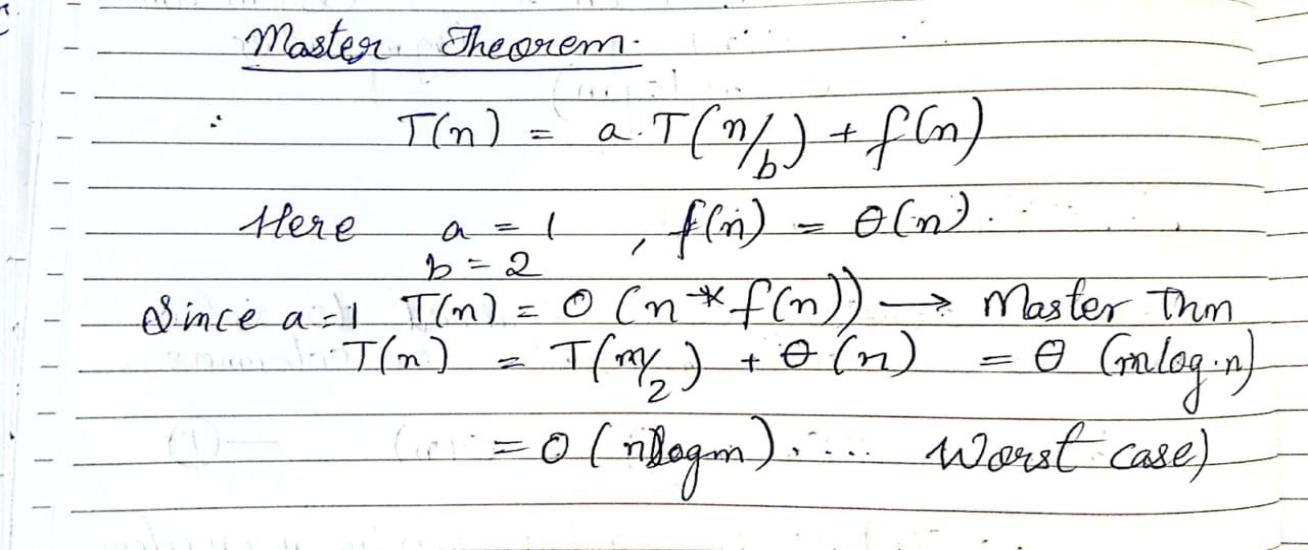 Master Theorem.
∴ T(n) = a.T(n/b) + f(n)
Here a = 1 , f(n) = θ(n).
b = 2
Since a=1 T(n) = O (n * f(n)) → Master Thm
T(n) = T(n/2) + θ(n) = θ (nlog.n)
= O (nlogn). ... Worst case)